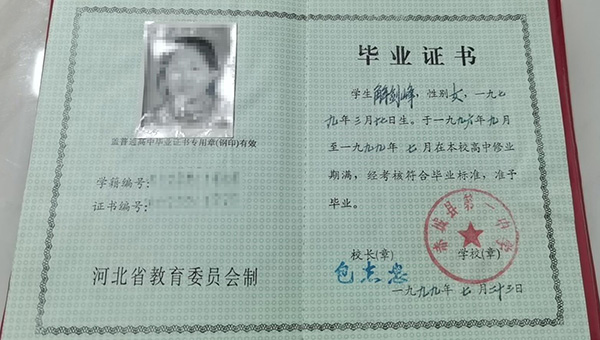 盖普通高中毕业证书专用章(钢印)有效
学籍编号:
证书编号:
河北省教育委员会制
毕业证书
学生解剑峰,性别女,一九七
九年三月七日生。于一九九六年九月
至一九九九年七月在本校高中修业
期满,经考核符合毕业标准,准予
毕业。
校长(章) 学校(章)
县第一中学
包志忠
一九九九年七月二十三日